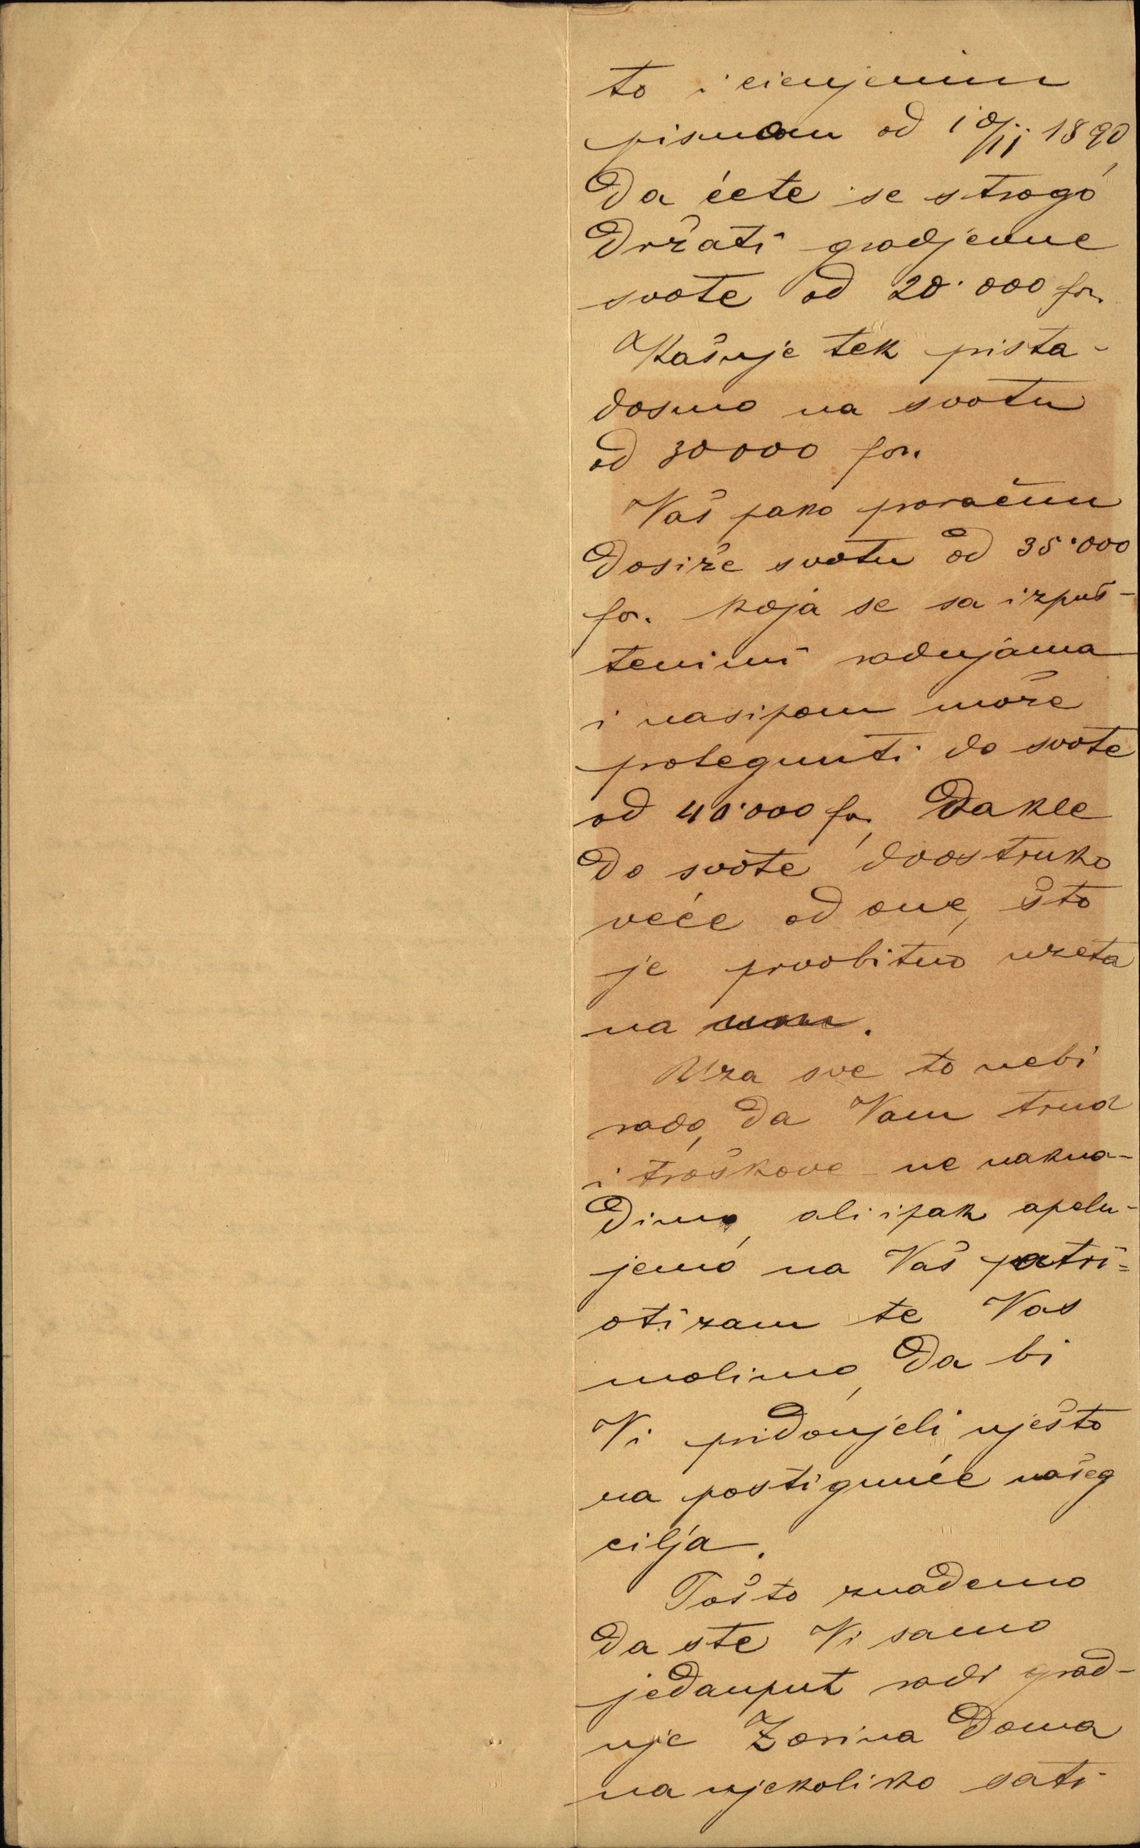 to i cienjenim
pismom od 10/11 1890,
da ćete se strogo
držati gradjevne
svote od 20·000 for.
Kašnje tek prista-
dosmo na svotu
od 30000 for.
Vaš pako proračun
dosiže svotu od 35·000
for. koja se sa izpuš-
tenimi radnjama
i nasipom može
protegnuti do svote
od 40·000 for, dakle
do svote dvostruko
veće od one, što
je prvobitno uzeta
na um.
Uza sve to nebi
rado, da Vam trud
i troškove ne nakna-
dimo, ali ipak apelu-
jemo na Vaš patri-
otizam te Vas
molimo, da bi
Vi pridonjeli nješto
na postignuće našeg
cilja.
Pošto znademo
da ste Vi samo
jedanput radi grad-
nje Zorina Doma
na njekoliko sati